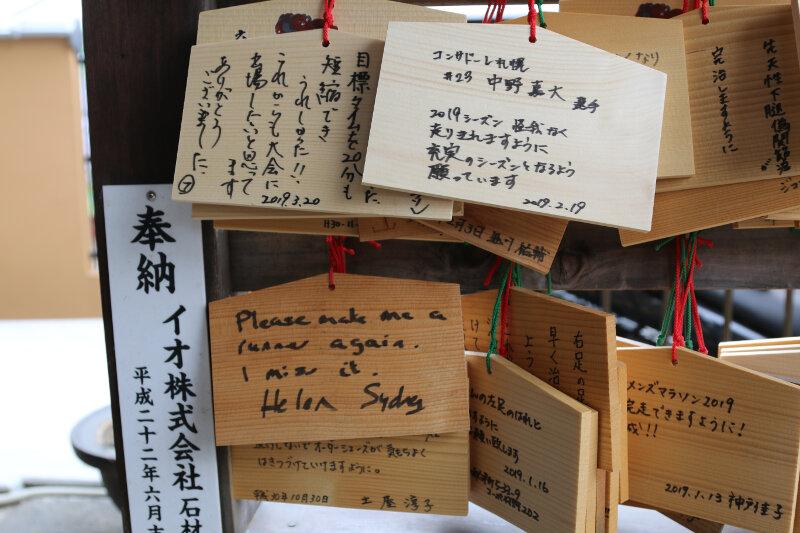 目標タイムを20分も
短縮でき
うれしかった!!
これからも大会に
出場したいと思って
ます
ありがとう
ございました。
2019.3.20
コンサドーレ札幌
#23 中野嘉大 選手
2019シーズン 怪我なく
走りきれますように
充実のシーズンとなるよう
願っています
2019.2.19
なり
先天性下腿偽関節治
完治しますように
奉納
イオ株式会社 石材
平成二十二年六月
Please make me a
runner again.
I miss it.
Helen Sydney
しないでオーダーシューズが気もちよく
はきつづけていけますように。
平成30年10月30日
土屋 淳子
右足の
早く治
よう
の左足のはれと
ますように
願い致します
2019.1.16
メンズマラソン2019
完走できますように!
成!!
2019.1.13